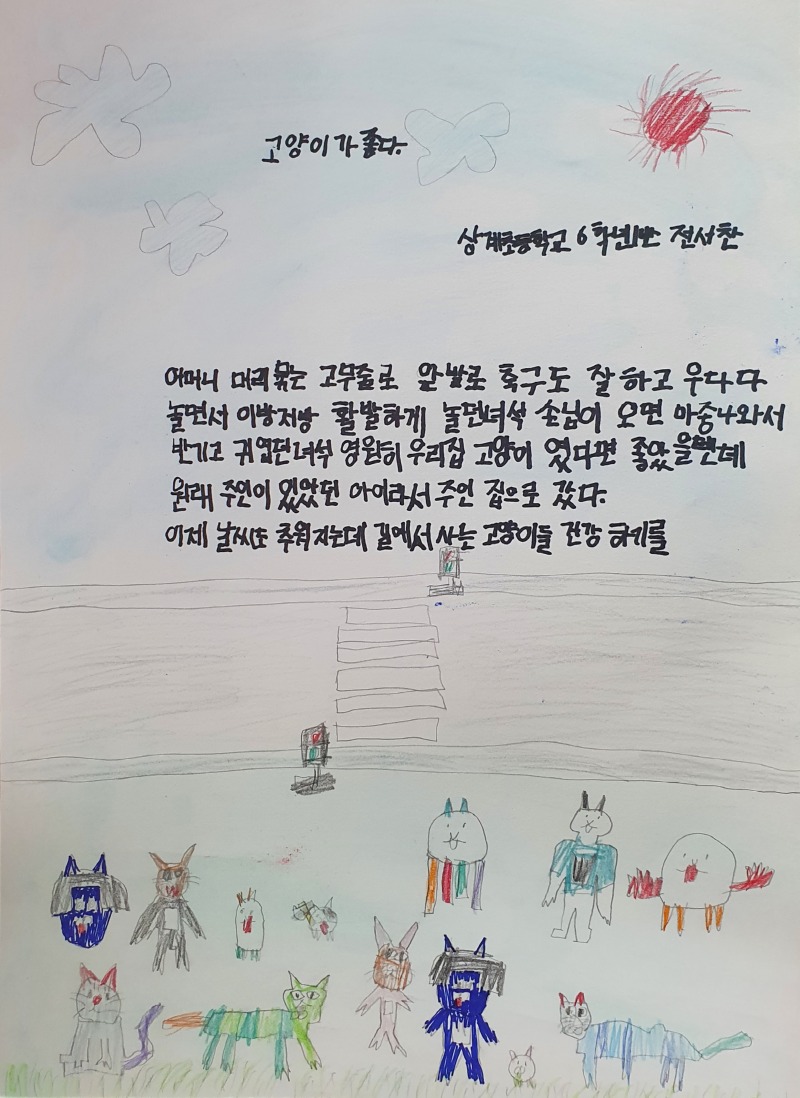 고양이가 좋다.
상계초등학교 6학년1반 전서찬
어머니 머리 묶는 고무줄로 앞발로 축구도 잘하고 우다다
놀면서 이방저방 활발하게 놀던녀석 손님이 오면 마중나와서
반기고 귀엽던녀석 영원히 우리집 고양이 였다면 좋았을텐데
원래 주인이 있었던 아이라서 주인 집으로 갔다.
이제 날씨도 추워지는데 길에서 사는 고양이들 건강 하기를